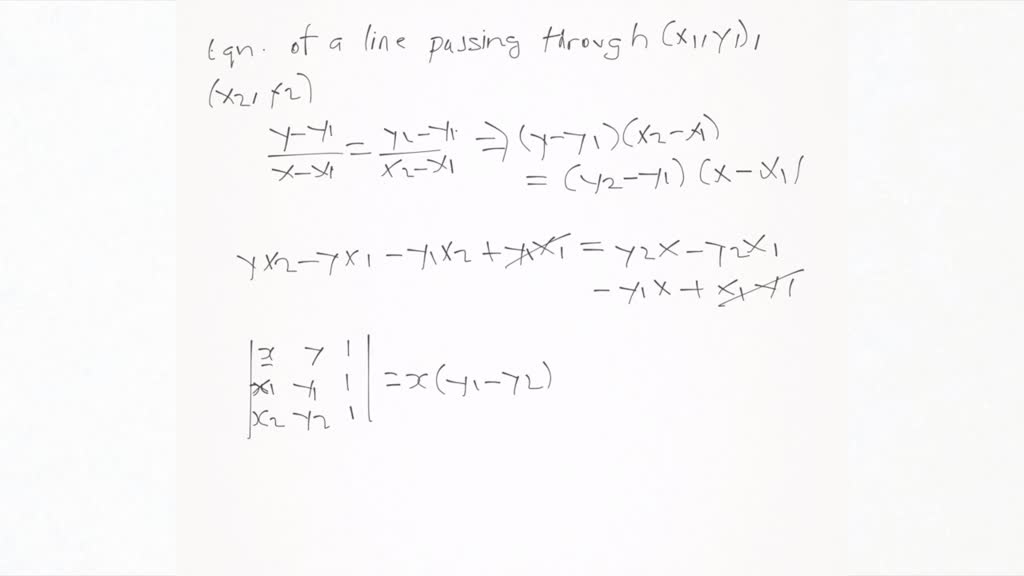 Eqn. of a line passing through (x1, y1),
(x2, y2)
y-y1/x-x1 = y2-y1/x2-x1 ⇒ (y-y1)(x2-x1)
= (y2-y1)(x-x1)
yx2-yx1-y1x2+y1x1 = y2x-y2x1
-y1x+x1y1
|x y 1|
|x1 y1 1| = x(y1-y2)
|x2 y2 1|